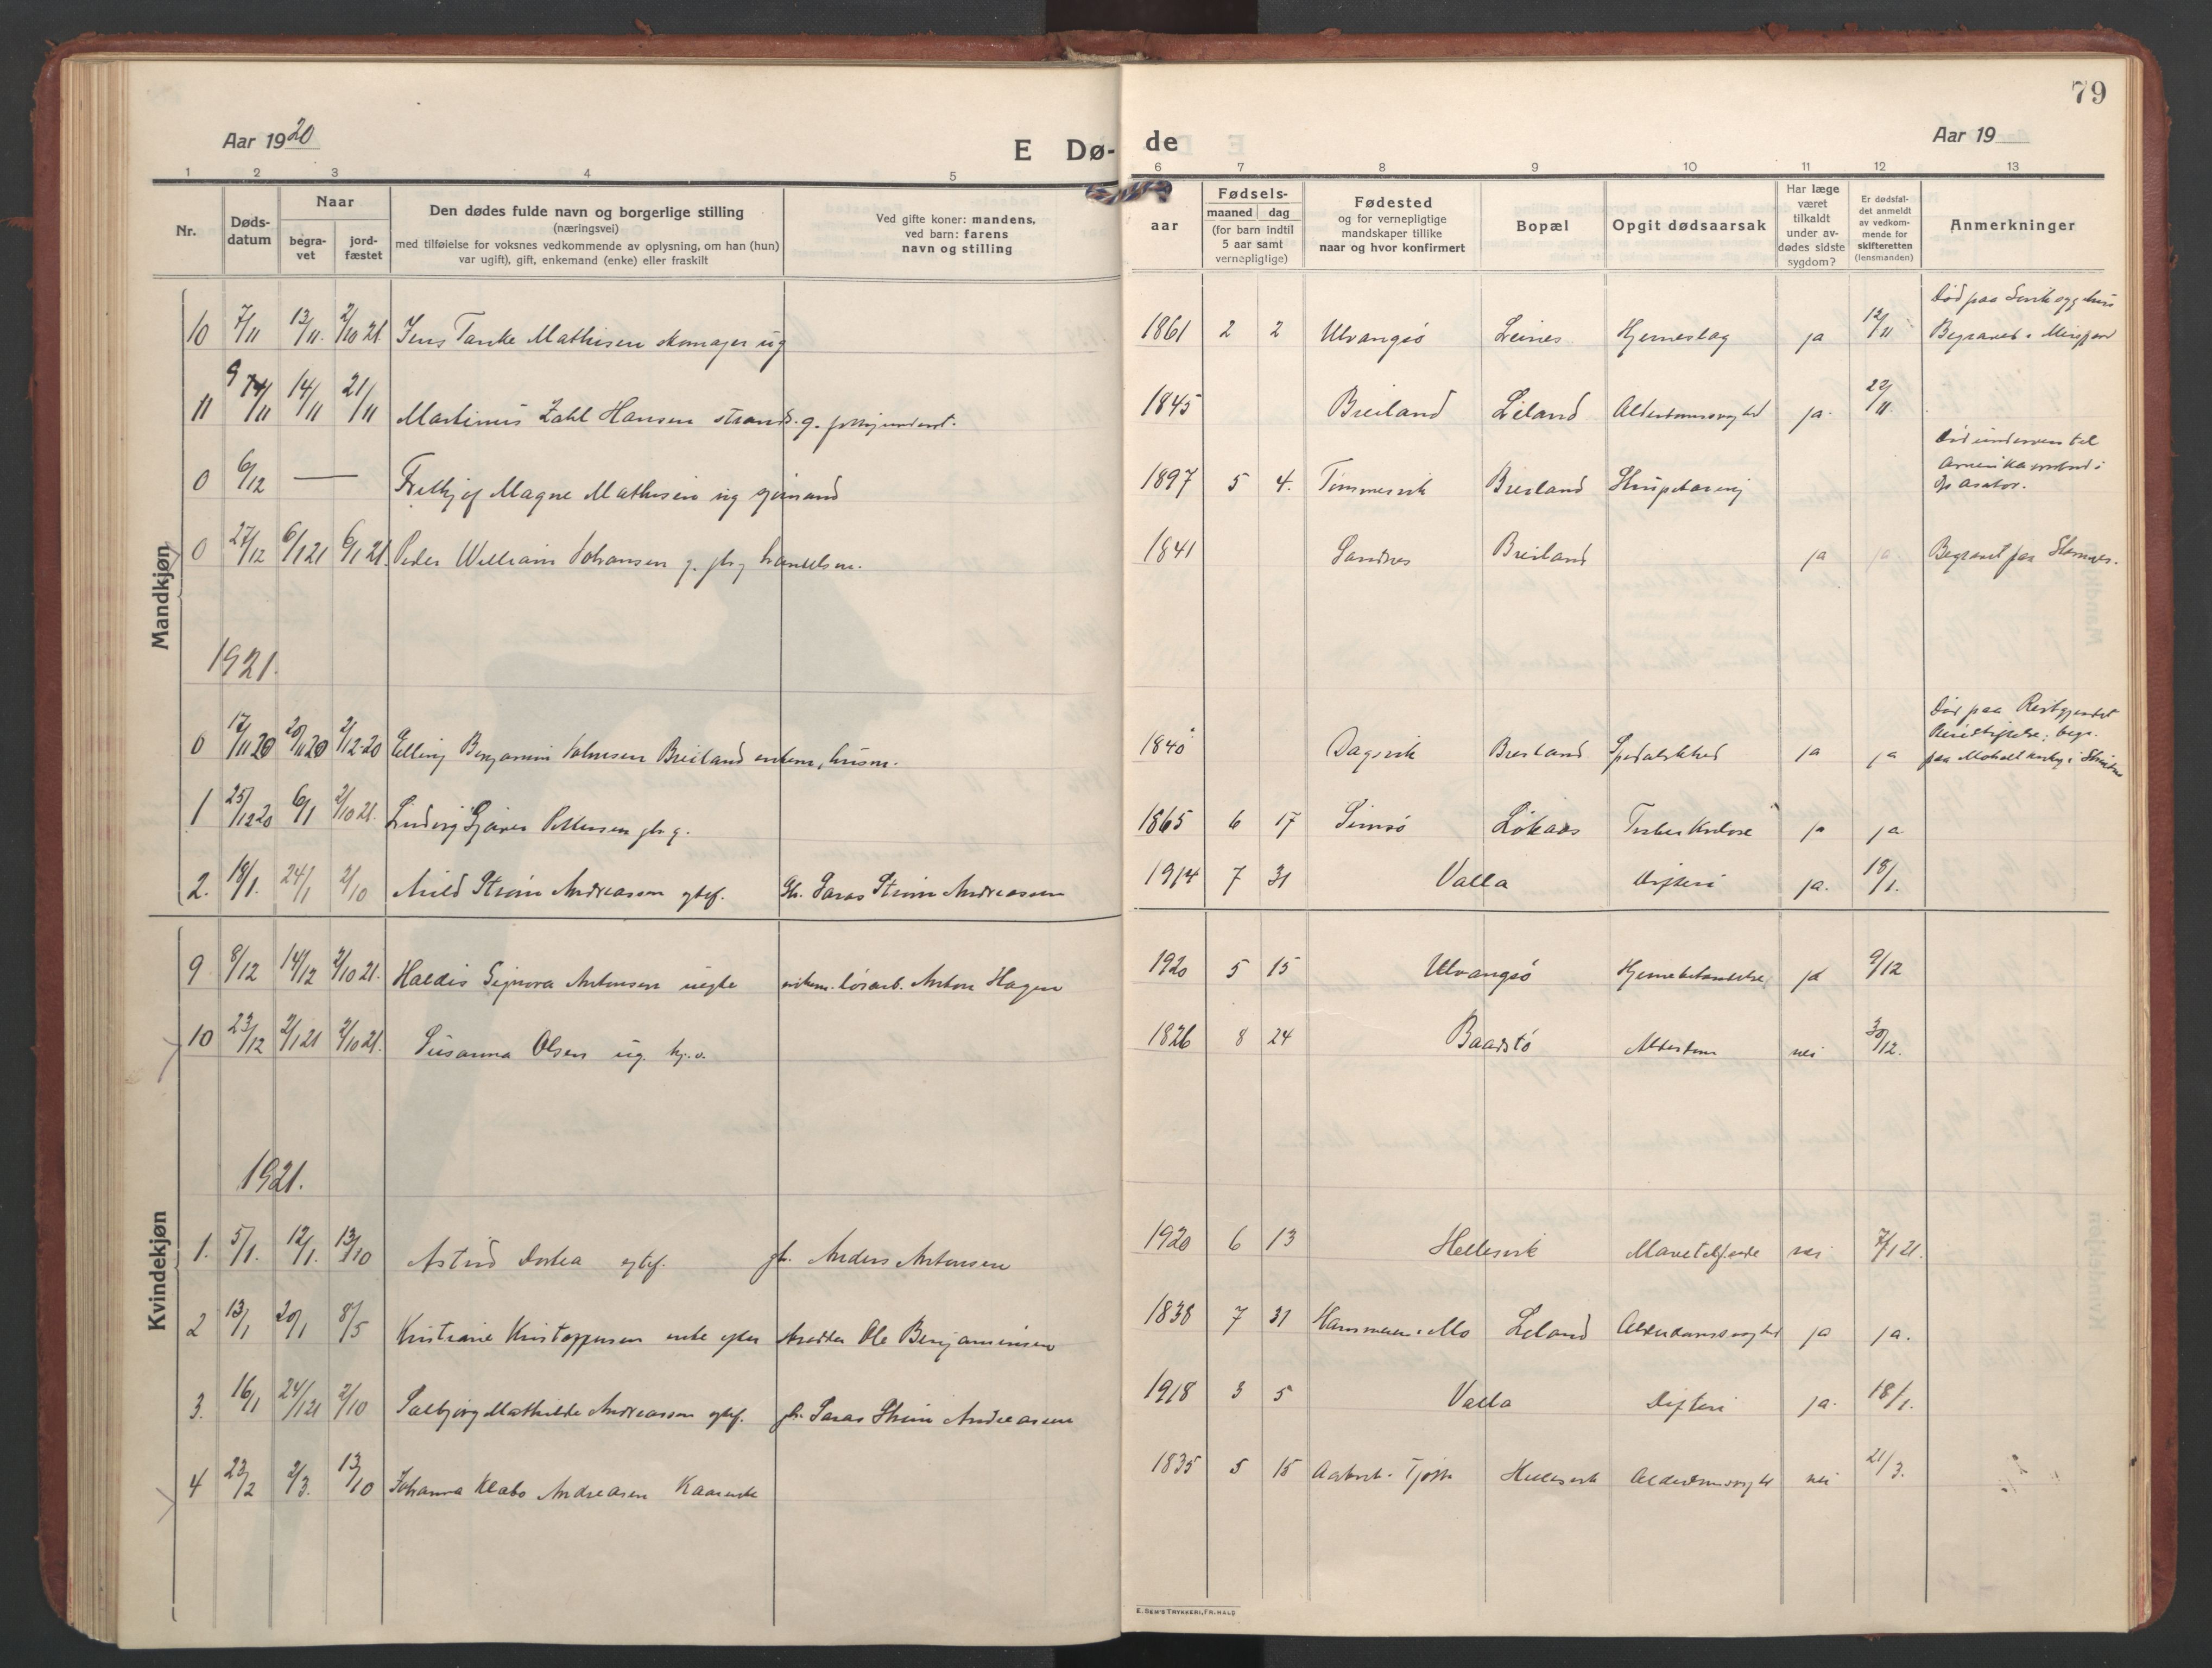 79
Aar 1920
E Dø-
de
Aar 19
1 2 3 4 5 6 7 8 9 10 11 12 13
Nr.
Døds-
datum
Naar
begra-
vet
jord-
fæstet
Den dødes fulde navn og borgerlige stilling
(næringsvei)
med tilføielse for voksnes vedkommende av oplysning, om han (hun)
var ugift), gift, enkemand (enke) eller fraskilt
Ved gifte koner: mandens,
ved barn: farens
navn og stilling
aar
Fødsels-
maaned dag
(for barn indtil
5 aar samt
vernepligtige)
Fødested
og for vernepligtige
mandskaper tillike
naar og hvor konfirmert
Bopæl
Opgit dødsaarsak
Har læge
været
tilkaldt
under av-
dødes sidste
sygdom?
Er dødsfal-
det anmeldt
av vedkom-
mende for
skifteretten
(lensmanden)
Anmerkninger
Mandkjøn
10 7/11 13/11. 2/10 21 Jens Tanke Mathisen skomager ug 1861 2 2 Ulvangsø Leines Hjerneslag ja 12/11 Død paa
Begravet i
11 9/11 14/11 21/11 Martinus Zahl Hansen strands. g. 1845 Breiland Leland Alderdomssvaghed ja. 22/11.
0 6/12 — Magne Mathisen ug sjømand 1897 5 4. Breiland Død underveis til
Amerika
0 27/12 6/1 21 6/1 21. Peder William Johansen g. gbr handelsm. 1841 Sandnes Breiland ja ja Begravet paa Stamnes.
1921.
0 17/11 20 20/11 20 2/12-20 Elling Benjamin Johnsen Breiland enkem, husm. 1840 Dagsvik Breiland Spedalskhed ja ja Død paa Reitgjerdet
Pleiestiftelse; begr.
paa Moholt kirkeg. i Strinda
1 25/12 20 6/1 2/10 21. Ludvig Pettersen gbr g. 1865 6 17 Løkaas Tuberkulose ja ja
2. 18/1. 24/1 2/10 Arild Strøm Andreassen egtef. Gbr. Andreassen 1914 7 31 Valla Difteri ja. 18/1.
Kvindekjøn
9 8/12 14/12 2/10 21. Haldis Signora Antonsen uegte enkem. løsarb. Anton Hagen 1920 5 15 Ulvangsø Hjernebetændelse ja 9/12
10 23/12 2/1 21 2/10 21. Susanna Olsen ug. 1826 8 24 Baadstø Alderdom nei 30/12.
1921.
1. 5/1. 12/1. 13/10 Astrid Dortea egtef. gbr. Anders Antonsen 1920 6 13 Hellesvik nei 7/1 21.
2 13/1 20/1 8/5 Kristiane Kristoffersen enke efter Ole Benjaminsen 1838 7 31 Leland Alderdomssvaghed ja ja.
3. 16/1 24/1 21 2/10 Mathilde Andreassen egtef. gbr. Andreasen 1918 3 5 Valla Difteri ja. 18/1.
4 23/2 2/3. 13/10 Johanna Klabo Andreasen 1835 5 15 Hellesvik Alderdomssvaghed nei 21/3.
E. SEM'S TRYKKERI, FR.HALD